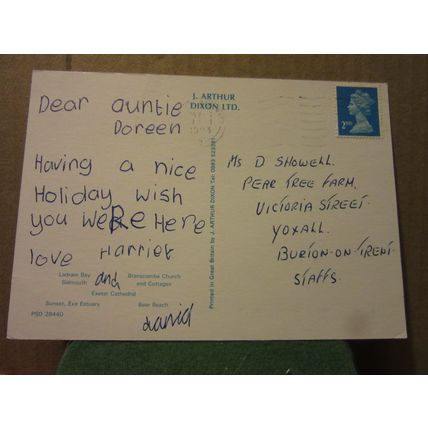 Dear auntie
Doreen
Having a nice
Holiday wish
you weRe Here
love Harriet
and
david
J. ARTHUR
DIXON LTD.
2ND
Ms D SHOWELL.
PEAR TREE FARM,
VICTORIA STREET.
YOXALL.
BURTON-ON-TRENT.
STAFFS.
Ladram Bay
Sidmouth
Branscombe Church
and Cottages
Exeter Cathedral
Sunset, Exe Estuary
Beer Beach
PSD 28440
Printed in Great Britain by J. ARTHUR DIXON Tel: